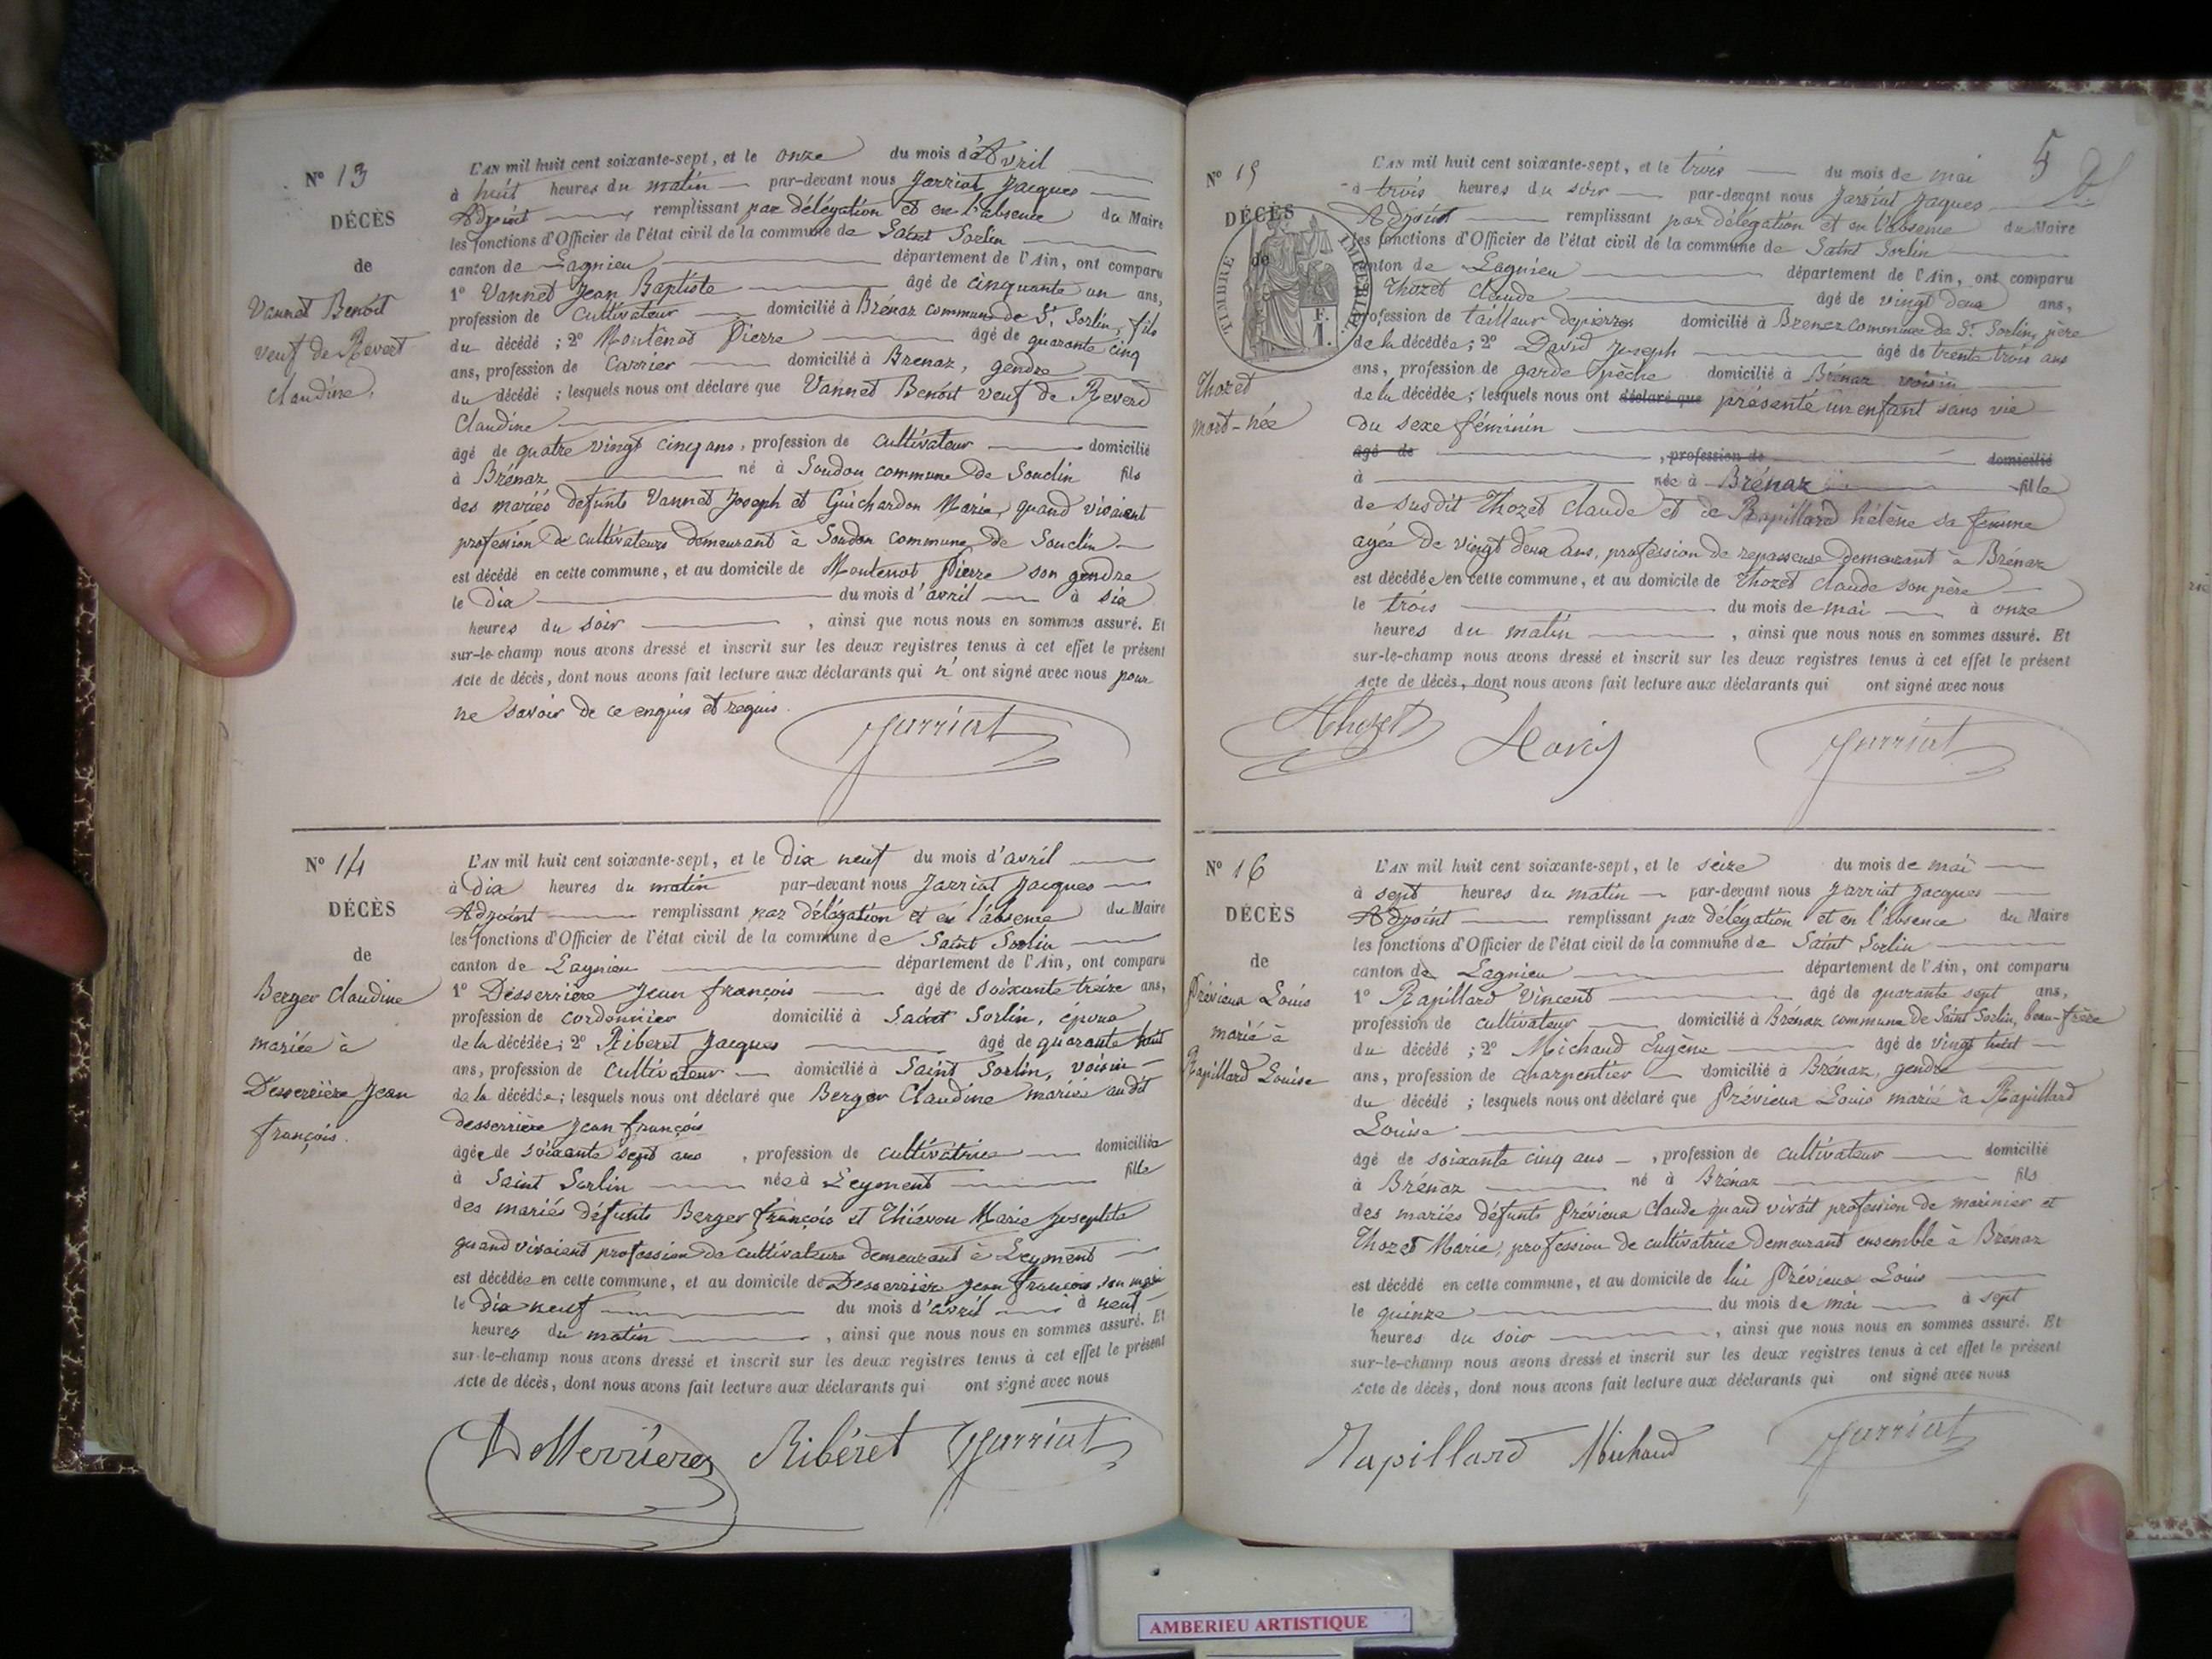 N° 13
DÉCÈS
de
Vannet Benoit
veuf de Revert
Claudine.
L'AN mil huit cent soixante-sept, et le onze du mois d'Avril
à huit heures du matin par-devant nous Jarriat Jacques
Adjoint remplissant par délégation et en l'absence du Maire
les fonctions d'Officier de l'état civil de la commune de Saint Sorlin
canton de Lagnieu département de l'Ain, ont comparu
1° Vannet Jean Baptiste âgé de cinquante un ans,
profession de cultivateur domicilié à Brénaz commune de St Sorlin, fils
du décédé ; 2° Montenot Pierre âgé de quarante cinq
ans, profession de Carrier domicilié à Brenaz, gendre
du décédé ; lesquels nous ont déclaré que Vannet Benoit veuf de Reverd
Claudine
âgé de quatre vingt cinq ans, profession de cultivateur domicilié
à Brénaz né à Soudon commune de Souclin fils
des mariés defunts Vannet Joseph et Guichardon Marie, quand vivaient
profession de cultivateurs demeurant à Soudon commune de Souclin
est décédé en cette commune, et au domicile de Montenot Pierre son gendre
le dix du mois d'avril à six
heures du soir , ainsi que nous nous en sommes assuré. Et
sur-le-champ nous avons dressé et inscrit sur les deux registres tenus à cet effet le présent
Acte de décès, dont nous avons fait lecture aux déclarants qui n'ont signé avec nous pour
ne savoir de ce enquis et requis.
Jarriat
N° 14
DÉCÈS
de
Berger Claudine
mariée à
Desserrière Jean
françois.
L'AN mil huit cent soixante-sept, et le dix neuf du mois d'avril
à dix heures du matin par-devant nous Jarriat Jacques
Adjoint remplissant par délégation et en l'absence du Maire
les fonctions d'Officier de l'état civil de la commune de Saint Sorlin
canton de Lagnieu département de l'Ain, ont comparu
1° Desserrière Jean françois âgé de soixante treize ans,
profession de cordonnier domicilié à Saint Sorlin, époux
de la décédée ; 2° Riberet Jacques âgé de quarante huit
ans, profession de cultivateur domicilié à Saint Sorlin, voisin
de la décédée ; lesquels nous ont déclaré que Berger Claudine mariée au dit
desserrière Jean françois
âgée de soixante sept ans , profession de cultivatrice domiciliée
à Saint Sorlin née à Leyment fille
des mariés défunts Berger françois et Thiévon Marie Josephte
quand vivaient profession de cultivateurs demeurant à Leyment
est décédée en cette commune, et au domicile de Desserrière Jean françois son mari
le dix neuf du mois d'avril à neuf
heures du matin , ainsi que nous nous en sommes assuré. Et
sur-le-champ nous avons dressé et inscrit sur les deux registres tenus à cet effet le présent
Acte de décès, dont nous avons fait lecture aux déclarants qui ont signé avec nous
Ribéret Jarriat
5
N° 15
DÉCÈS
de
TIMBRE IMPÉRIAL
F.
1.
Thozet
mort-née
L'AN mil huit cent soixante-sept, et le trois du mois de mai
à trois heures du soir par-devant nous Jarriat Jaques
Adjoint remplissant par délégation et en l'absence du Maire
les fonctions d'Officier de l'état civil de la commune de Saint Sorlin
canton de Lagnieu département de l'Ain, ont comparu
Thozet Claude âgé de vingt deux ans,
profession de tailleur de pierres domicilié à Brenaz commune de St Sorlin, père
de la décédée ; 2° David Joseph âgé de trente trois ans
ans, profession de garde pêche domicilié à Brénaz voisin
de la décédée ; lesquels nous ont déclaré que présenté un enfant sans vie
du sexe féminin
âgé de , profession de domicilié
à née à Brénaz fille
de susdit Thozet Claude et de Rapillard hélène sa femme
agée de vingt deux ans, profession de repasseuse demeurant à Brénaz
est décédée en cette commune, et au domicile de Thozet Claude son père
le trois du mois de mai à onze
heures du matin , ainsi que nous nous en sommes assuré. Et
sur-le-champ nous avons dressé et inscrit sur les deux registres tenus à cet effet le présent
Acte de décès, dont nous avons fait lecture aux déclarants qui ont signé avec nous
Thozet David Jarriat
N° 16
DÉCÈS
de
Prévieux Louis
marié à
Rapillard Louise
L'AN mil huit cent soixante-sept, et le seize du mois de mai
à sept heures du matin par-devant nous Jarriat Jacques
Adjoint remplissant par délégation et en l'absence du Maire
les fonctions d'Officier de l'état civil de la commune de Saint Sorlin
canton de Lagnieu département de l'Ain, ont comparu
1° Rapillard Vincent âgé de quarante sept ans,
profession de cultivateur domicilié à Brénaz commune de Saint Sorlin, beau-frère
du décédé ; 2° Michaud Eugène âgé de vingt huit
ans, profession de charpentier domicilié à Brénaz, gendre
du décédé ; lesquels nous ont déclaré que Prévieux Louis marié à Rapillard
Louise
âgé de soixante cinq ans , profession de cultivateur domicilié
à Brénaz né à Brénaz fils
des mariés défunts Prévieux Claude quand vivait profession de marinier et
Thozet Marie, profession de cultivatrice demeurant ensemble à Brénaz
est décédé en cette commune, et au domicile de lui Prévieux Louis
le quinze du mois de mai à sept
heures du soir , ainsi que nous nous en sommes assuré. Et
sur-le-champ nous avons dressé et inscrit sur les deux registres tenus à cet effet le présent
Acte de décès, dont nous avons fait lecture aux déclarants qui ont signé avec nous
Rapillard Michaud Jarriat
AMBERIEU ARTISTIQUE